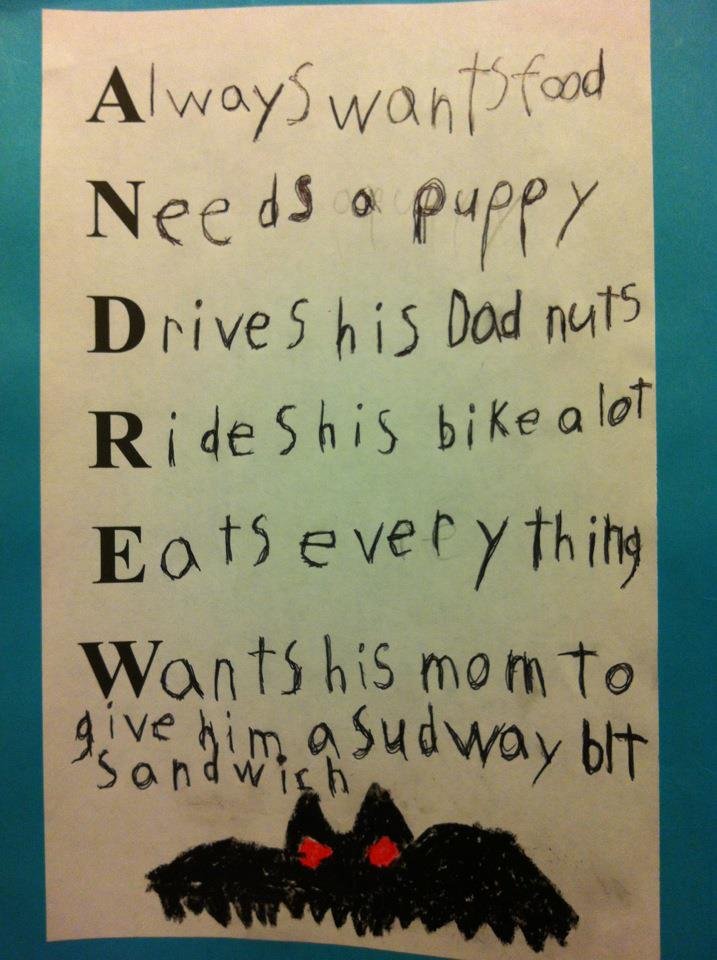 Always wants food
Needs a puppy
Drives his Dad nuts
Rides his bike a lot
Eats everything
Wants his mom to
give him a sudway blt
sandwich